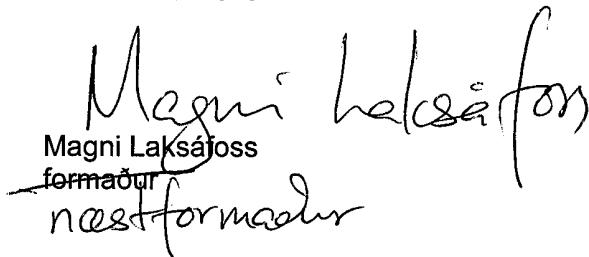 Magni Laksáfoss
Magni Laksáfoss
formaður
næstformaður